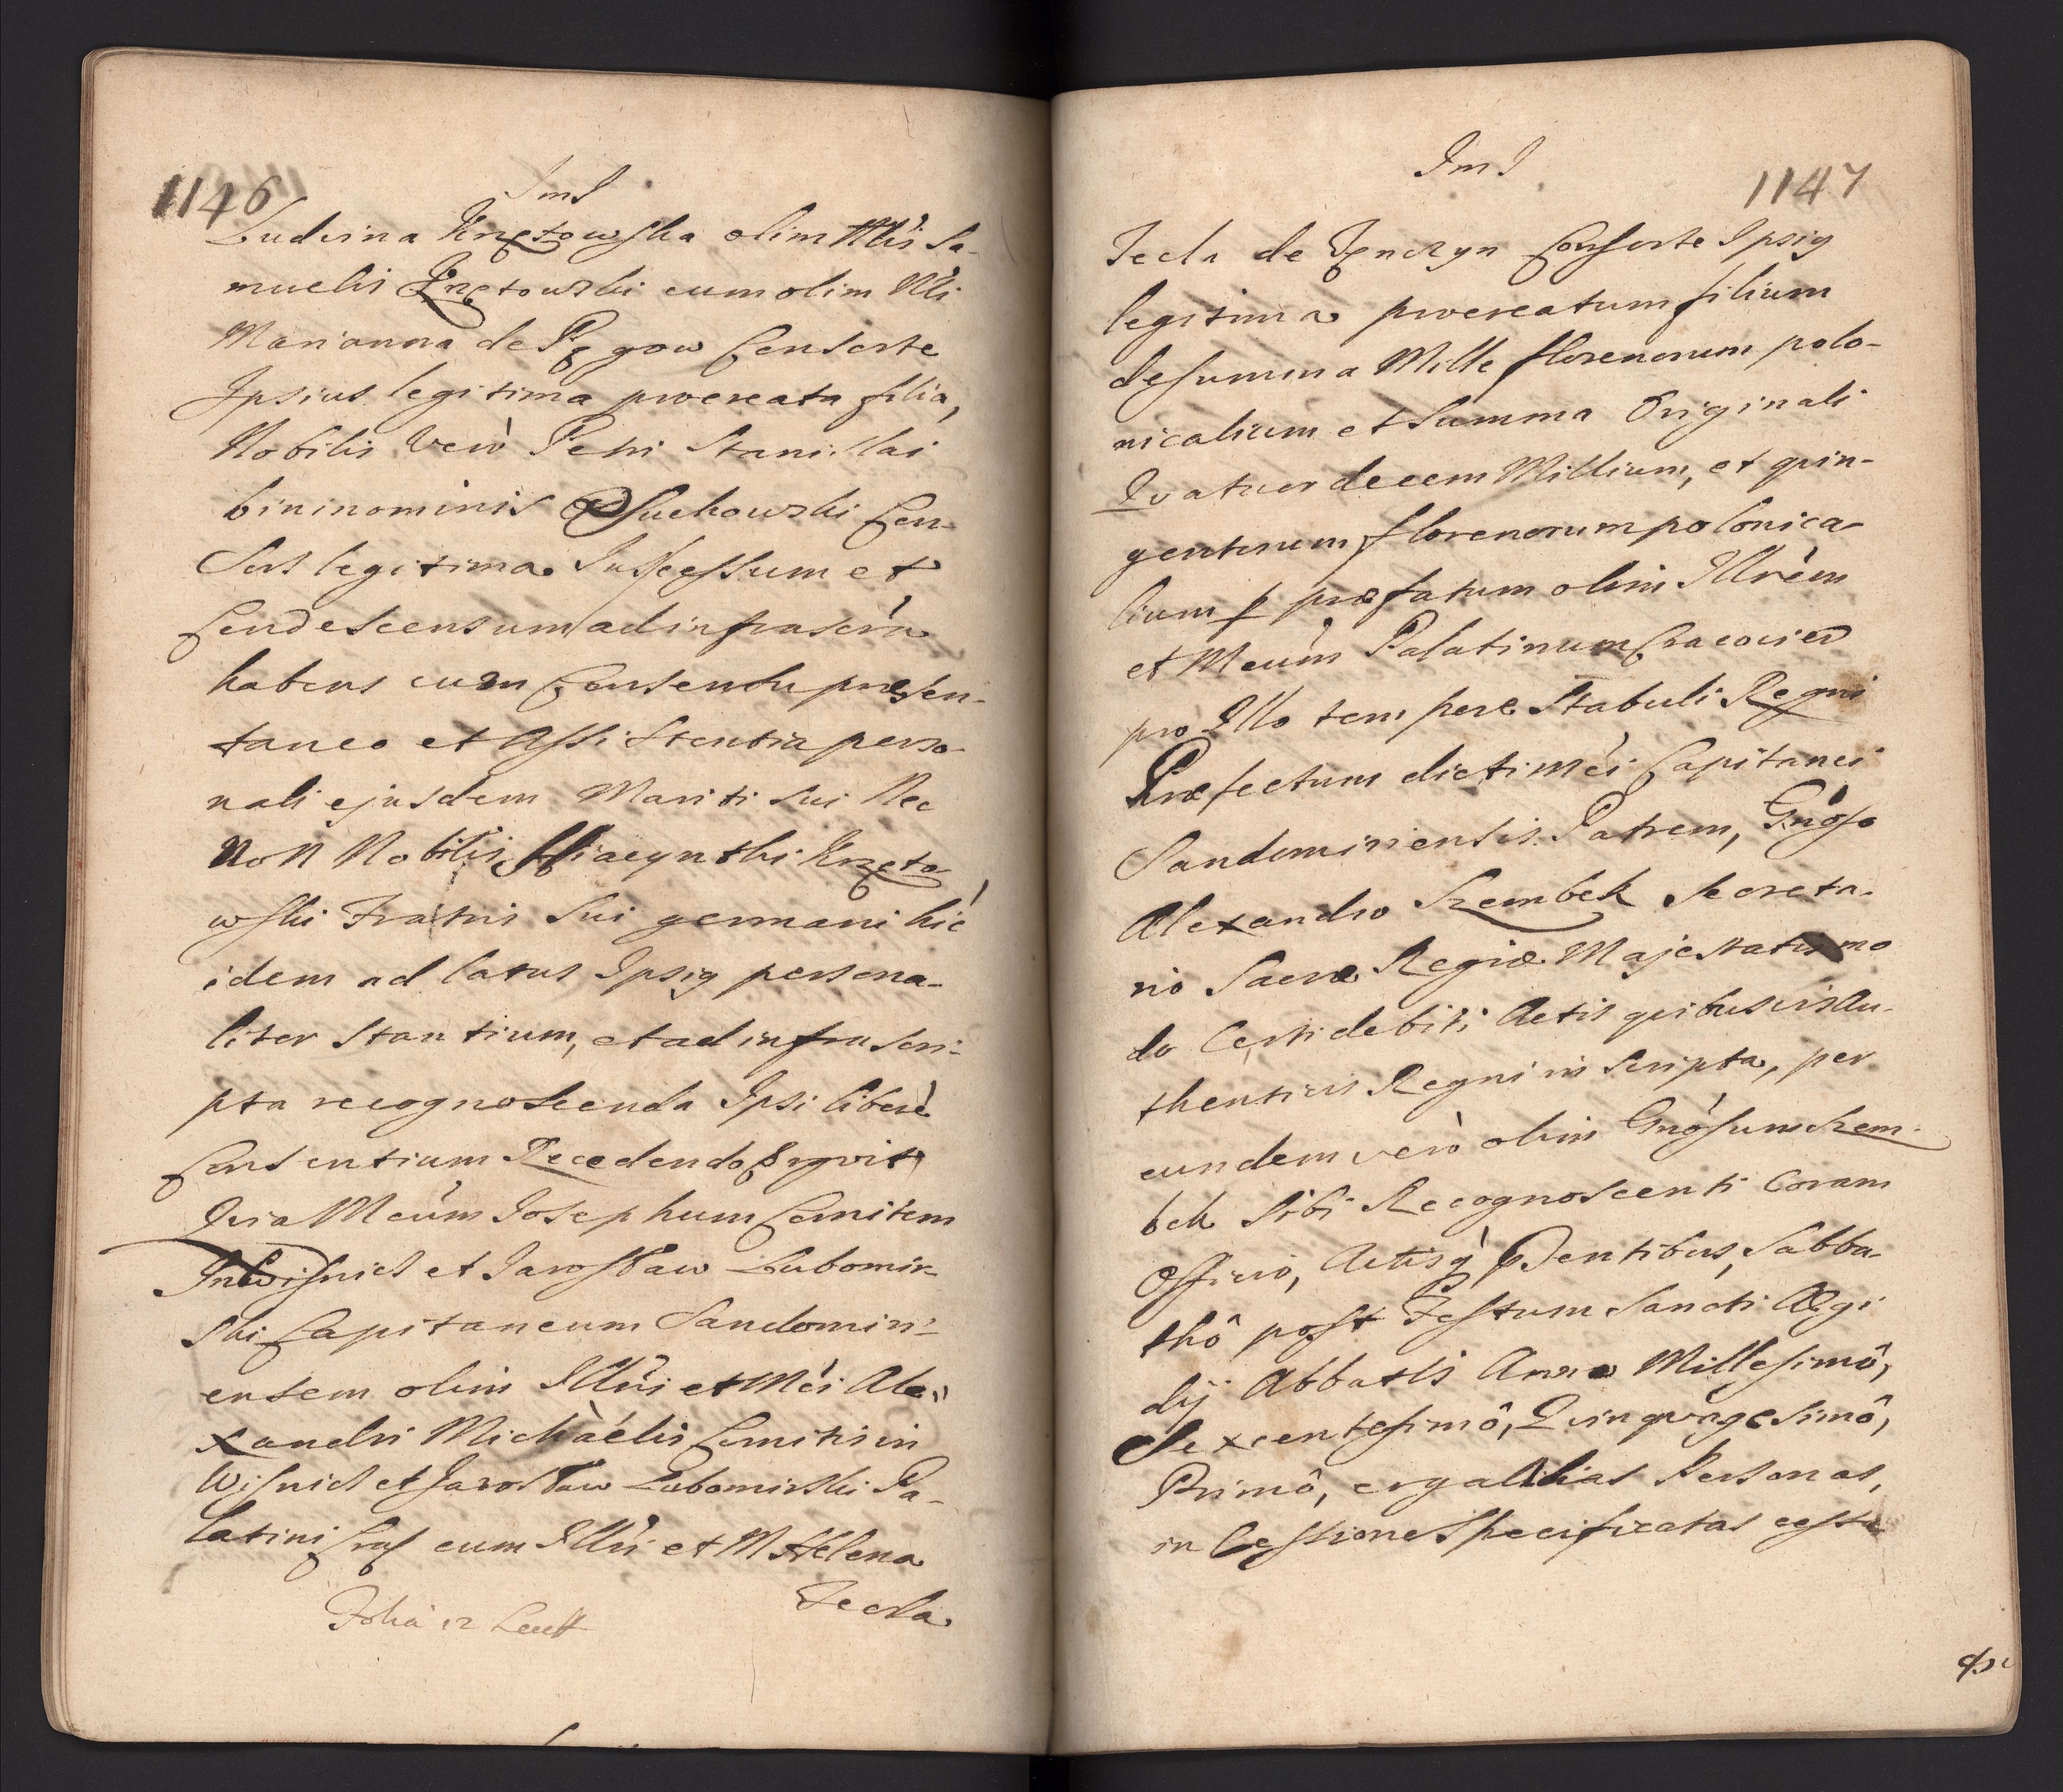 1146
ImI
Ludvina Krzętowska olim Nlis Sa-
muelis Krzętowski cum olim Nli
Marianna de Pągow Consorte
Ipsius legitima procreata filia,
Nobilis verò Petri Stanislai
bininominis Suchowski Con-
Sors legitima Successum et
Condescensum ad infrascrta
habens cum Consensu præsen-
taneo et Assistentia perso-
nali ejusdem Mariti sui Nec
Non Nobilis Hiacynthi Krzęto-
wski Fratris Sui germani hic
idem ad latus Ipsig persona-
liter Stantium, et ad infra scri-
pta recognoscenda Ipsi liberè
Consentium Recedendo
Quia Mcum Josephum Comitem
In Wisnicz et Jarosław Lubomir-
ski Capitaneum Sandomiri-
ensem olim Illris et Mci Ale-
xandri Michaèlis Comitis in
Wisnicz et Jarosław Lubomirski Pa-
latini Crac cum Illri et M Helena
Tecla
1147
ImI
Tecla de Tęnczyn Consorte Ipsig
legitima procreatum filium
de summa Mille florenorum polo-
nicalium et Summa Originali
Qvatuordecem Millium, et qvin-
gentorum florenorum polonica-
lium p præfatum olim Illrem
et Mcum Palatinum Cracovien
pro Illo tempore Stabuli Regni
Præfectum dicti Mci Capitanei
Sandomiriensis Patrem, Gnoso
Alexandro Szembek Secreta-
rio Sacræ Regiæ Majestatis mo
do Certi debiti Actis qvibusvis Au-
thenticis Regni in Scripta, per
eundem verò olim Gnosum Szem-
bek Sibi Recognoscenti Coram
Officio, Actisq pdentibus, Sabba-
thô post Festum Sancti Ægi
dij Abbatis Anno Millesimô,
Sexcentesimô, Qvinqvagesimô,
Primô, erga alias Personas,
in Cessione Specificatas